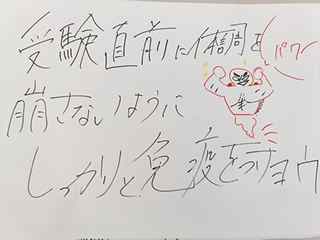 受験直前に体調を
パワー
崩さないように
しっかりと免疫をつけヨウ